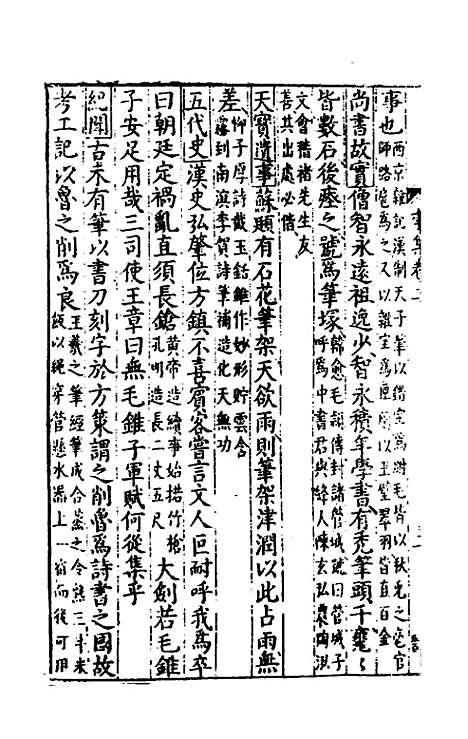 事也西京雜記漢制天子筆以錯寶為跗毛皆以秋兔之毫官
師路扈為之又以雜寶為匣厠以玉璧翠羽皆直百金
尚書故實僧智永遠祖逸少智永積年學書有禿筆頭千甕〻
皆數石後瘞之號為筆塚韓愈毛頴傳封諸管城號曰管城子
呼為中書君與絳人陳玄弘農陶泓
文會稽楮先生友
善其出處必偕
天寶遺事蘇頲有石花筆架天欲雨則筆架津潤以此占雨無
差柳子厚詩截玉銛錐作妙形貯雲含
霧到南溟李賀詩筆補造化天無功
五代史漢史弘肇位方鎮不喜賓客嘗言文人叵耐呼我為卒
曰朝廷定禍亂直須長鎗黃帝造繪事始揩竹槍
孔明造長二丈五尺大劍若毛錐
子安足用哉三司使王章曰無毛錐子軍賦何從集乎
紀聞古未有筆以書刀刻字於方策謂之削魯為詩書之國故
考工記以魯之削為良王羲之筆經筆成合蒸之令熟三斗米
飯以繩穿管懸水器上一宿而後可用